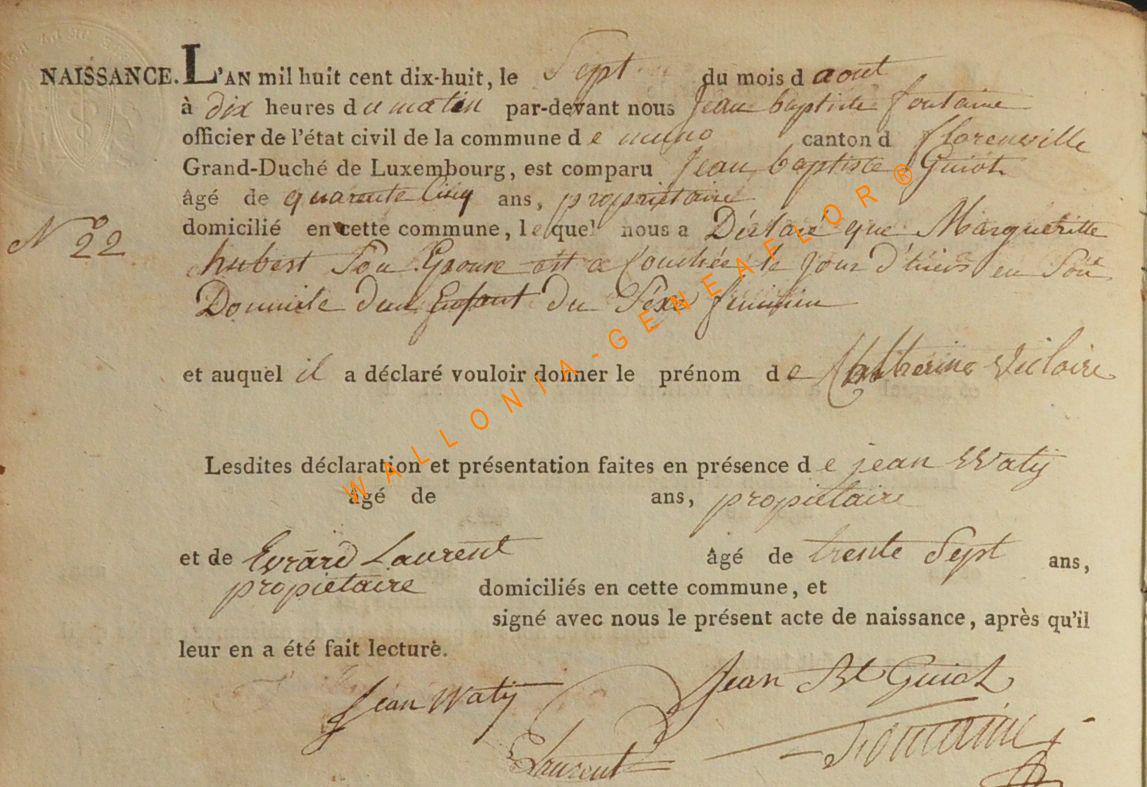 NAISSANCE. L'AN mil huit cent dix-huit, le Sept du mois d aout
à dix heures du matin par-devant nous Jean baptiste fontaine
officier de l'état civil de la commune de muno canton d florenville
Grand-Duché de Luxembourg, est comparu Jean baptiste Guiot
âgé de quarente Cinq ans, proprietaire
N° 22
domicilié en cette commune, lequel nous a Déclaré que Margueritte
hubert Son Epouse est acouchée le Jour d'hiers en Son
Domicile d'un Enfant du Sexe feminin
et auquel il a déclaré vouloir donner le prénom de Catherine Victoire
Lesdites déclaration et présentation faites en présence de jean Waty
âgé de ans, propietaire
et de Evrard Laurent âgé de trente Sept ans,
propietaire domiciliés en cette commune, et
signé avec nous le présent acte de naissance, après qu'il
leur en a été fait lecture.
Jean Waty Jean Bt Guiot
E Laurent Fontaine
WALLONIA-GENEAFLOR®